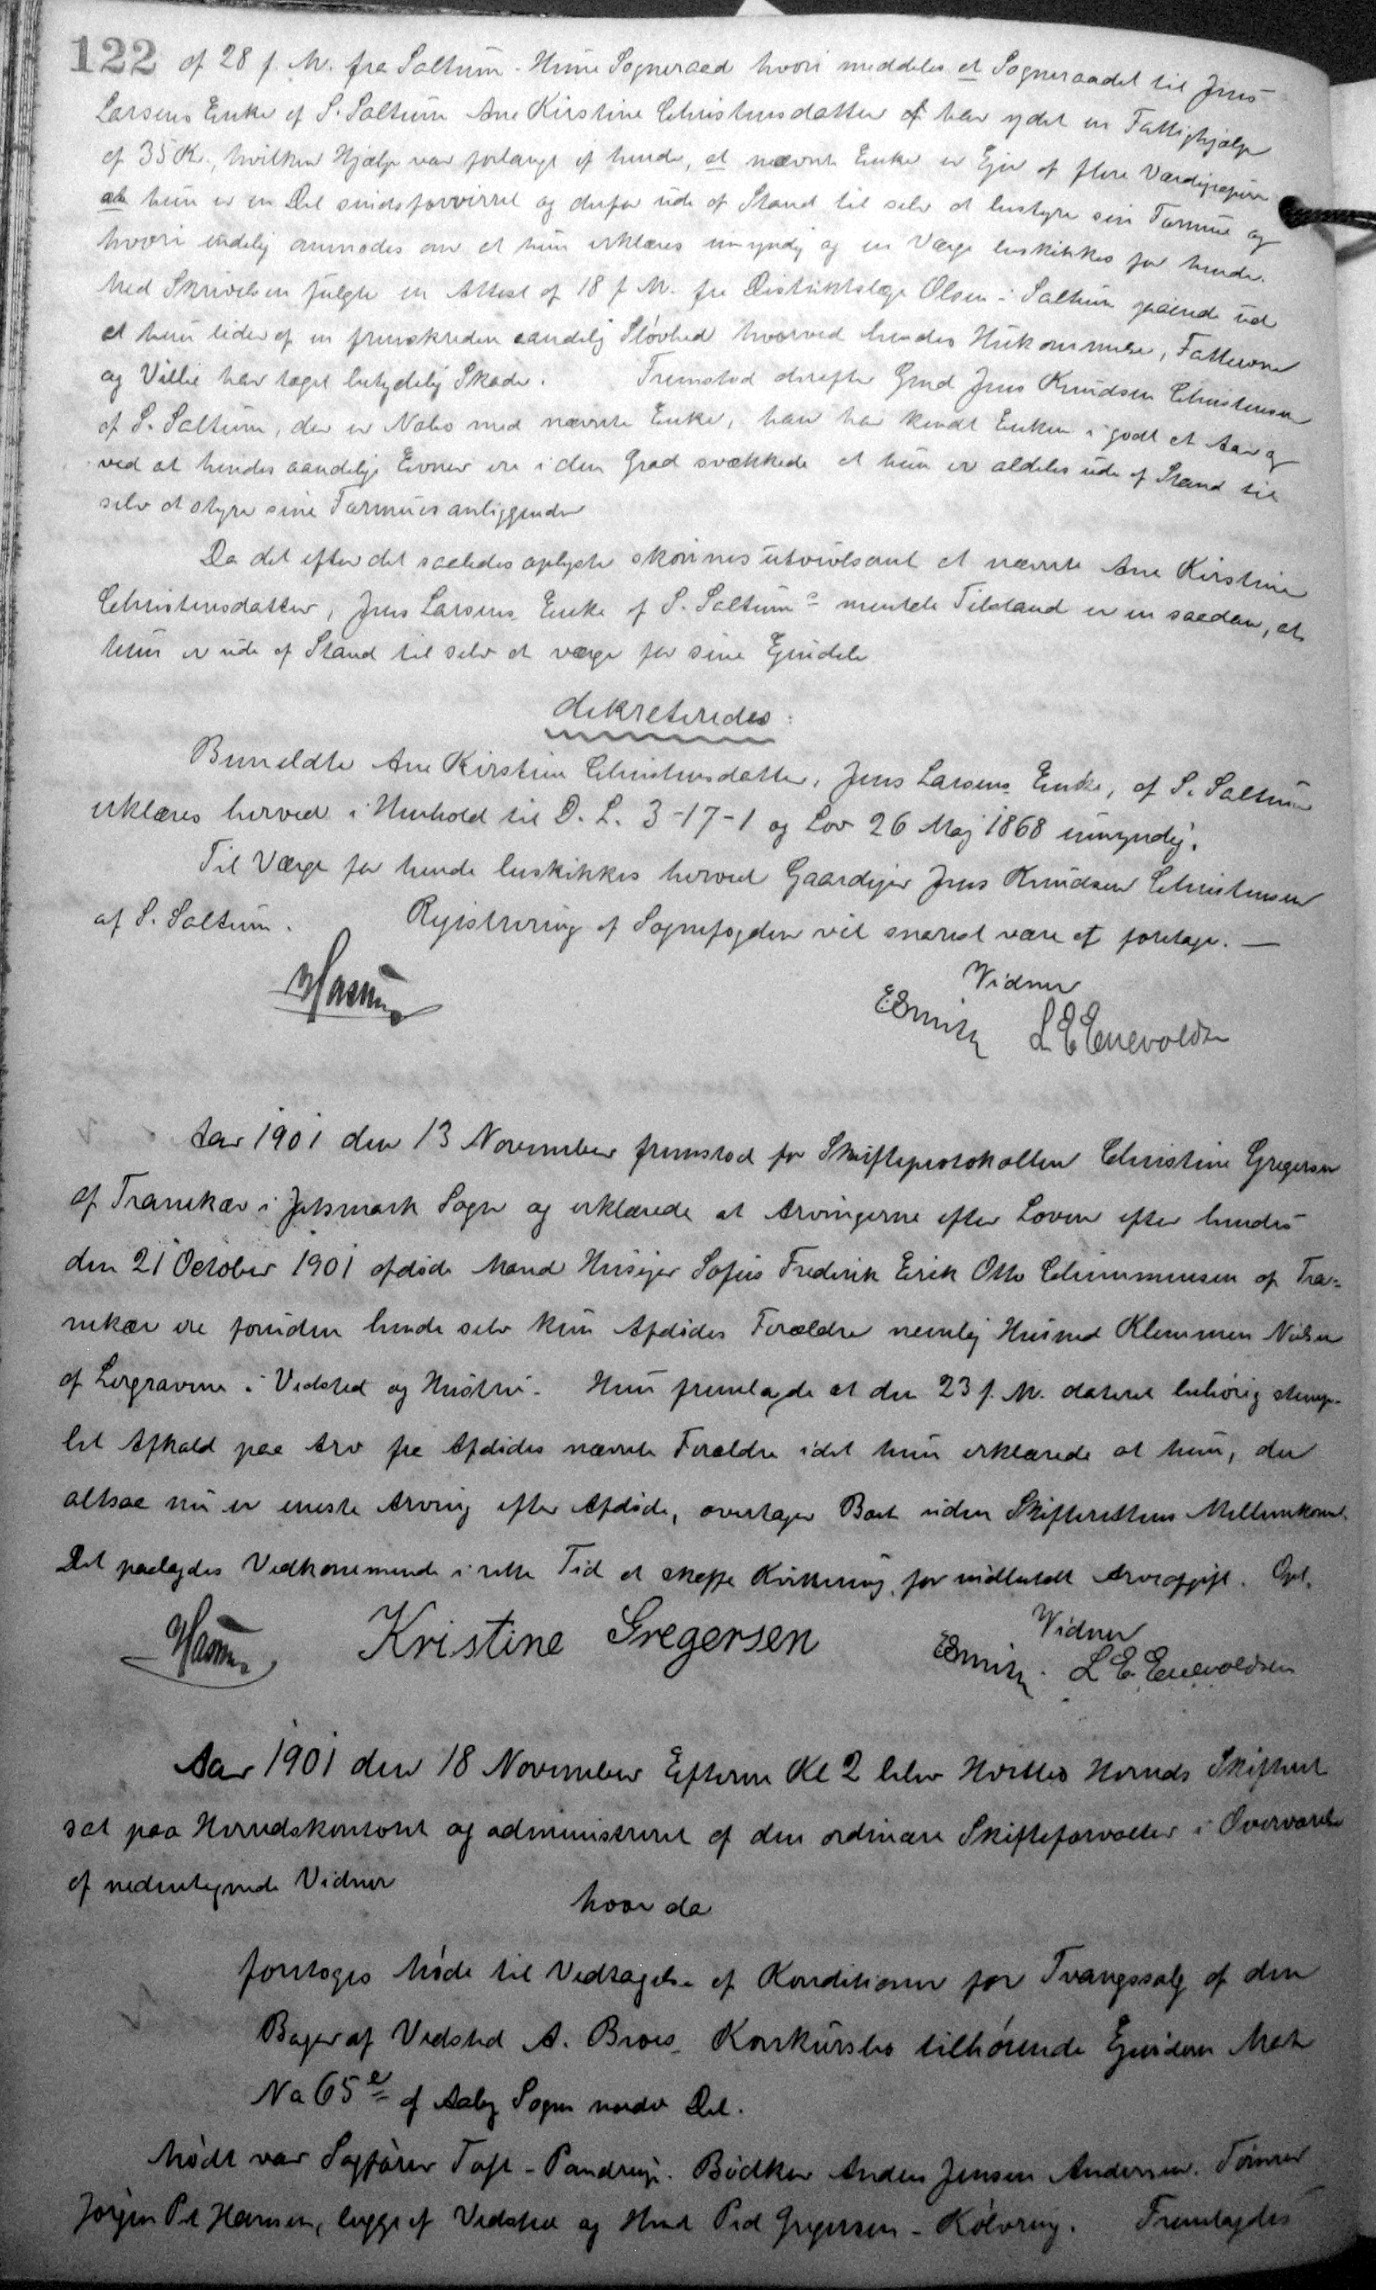 122 af 28 f. M. fra Saltum-Hune Sogneraad hvori meddeles at Sogneraadet til Jens
Larsens Enke af S. Saltum Ane Kirstine Christensdatter har ydet en Fattighjælp
af 35 Kr., hvilken Hjælp var forlangt af hende, at nævnte Enke er Ejer af flere Værdipapirer
at hun er en Del sindsforvirret og derfor ude af Stand til selv at bestyre sin Formue og
hvori endelig anmodes om at hun erklæres umyndig og en Værge beskikkes for hende.
Med Skrivelsen fulgte en Attest af 18 f. M. fra Distriktslæge Olsen i Saltum gaaende ud
at hun lider af en fremskreden aandelig Sløvhed hvorved hendes Hukommelse, Fatteevne
og Villie har taget betydelig Skade. Fremstod derefter Grmd Jens Knudsen Christensen
af S. Saltum, der er Nabo med nævnte Enke, han har kendt Enken i godt et Aar og
ved at hendes aandelige Evner ere i den Grad svækkede at hun er aldeles ude af Stand til
selv at styre sine Formuesanliggender
Da det efter det saaledes oplyste skønnes utvivlsomt at nævnte Ane Kirstine
Christensdatter, Jens Larsens Enke af S. Saltums mentale Tilstand er en saadan, at
hun er ude af Stand til selv at værge for sine Ejendele
dekreteredes:
Bemeldte Ane Kirstine Christensdatter, Jens Larsens Enke, af S. Saltum
erklæres herved i Henhold til D. L. 3-17-1 og Lov 26 Maj 1868 umyndig.
Til Værge for hende beskikkes herved Gaardejer Jens Knudsen Christensen
af S. Saltum. Registrering af Sognefogden vil snarest være at foretage. —
Vidner
Hasum
ESmith L E Enevoldsen
Aar 1901 den 13 November fremstod for Skifteprotokollen Christine Gregersen
af Tranekær i Jetsmark Sogn og erklærede at Arvingerne efter Loven efter hendes
den 21 October 1901 afdøde Mand Husejer Sofus Frederik Erik Otto Clemmensen af Tra-
nekær ere foruden hende selv kun Afdødes Forældre nemlig Husmd Klemmen Nielsen
af Lergravene i Vedsted og Hustru. Hun fremlagde et den 23 f. M. dateret behørig stemp-
let Afkald paa Arv fra Afdødes nævnte Forældre idet hun erklærede at hun, der
altsaa nu er eneste Arving efter Afdøde, overtager Boet uden Skifterettens Mellemkomst.
Det paalagdes Vedkommende i rette Tid at skaffe Kvittering for indbetalt Arveafgift. Opl.
Vidner
Hasum Kristine Gregersen ESmith. L E Enevoldsen
Aar 1901 den 18 November Efterm Kl 2 blev Hvetbo Herreds Skifteret
sat paa Herredskontoret og administreret af den ordinære Skifteforvalter i Overværelse
af nedentegnede Vidner
hvor da
foretoges Møde til Vedtagelse af Konditioner for Tvangssalg af den
Bager af Vedsted A. Broes Konkursbo tilhørende Ejendom Matr
No 65e af Aaby Sogn nordr Del.
Mødt var Sagfører Toft-Pandrup. Bødker Anders Jensen Andersen. Tømrer
Jørgen P. Hansen, begge af Vedsted og Hmd Ped Gregersen-Kølvring. Fremlagdes